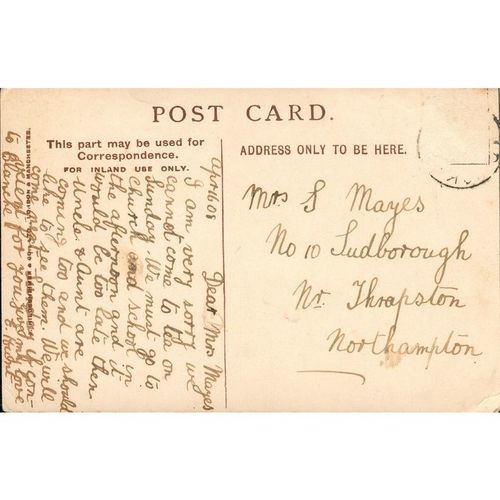 POST CARD.
This part may be used for
Correspondence.
FOR INLAND USE ONLY.
ADDRESS ONLY TO BE HERE.
Apr 16 08
Dear Mrs Mayes
I am very sorry we
cannot come to tea on
Sunday. We must go to
church and school in
the afternoon and it
would be too late then
Uncle & Aunt are
coming too and we should
like to see them. We will
come
to Blanche for you. love
Mrs S Mayes
No 10 Sudborough
Nr. Thrapston
Northampton